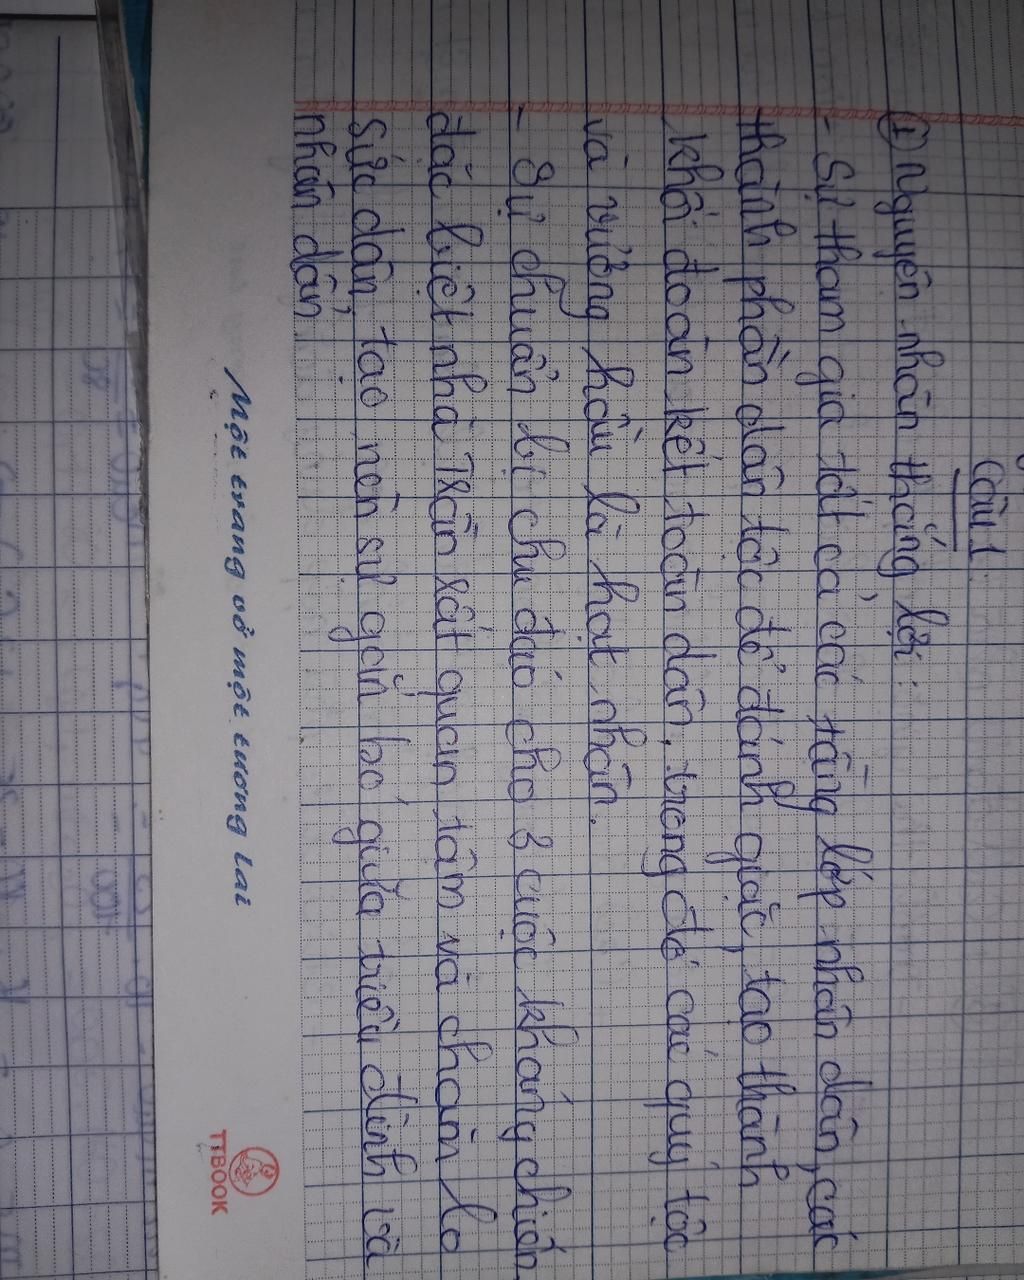 Câu 1
① Nguyên nhân thắng lợi:
- Sự tham gia tất cả các tầng lớp nhân dân, các
thành phần dân tộc để đánh giặc, tạo thành
khối đoàn kết toàn dân, trong đó các quý tộc
và vương hầu là hạt nhân.
- Sự chuẩn bị chu đáo cho 3 cuộc kháng chiến,
đặc biệt nhà Trần rất quan tâm và chăm lo
sức dân, tạo nên sự gắn bó giữa triều đình và
nhân dân
Một trang vở một tương lai
TTBOOK